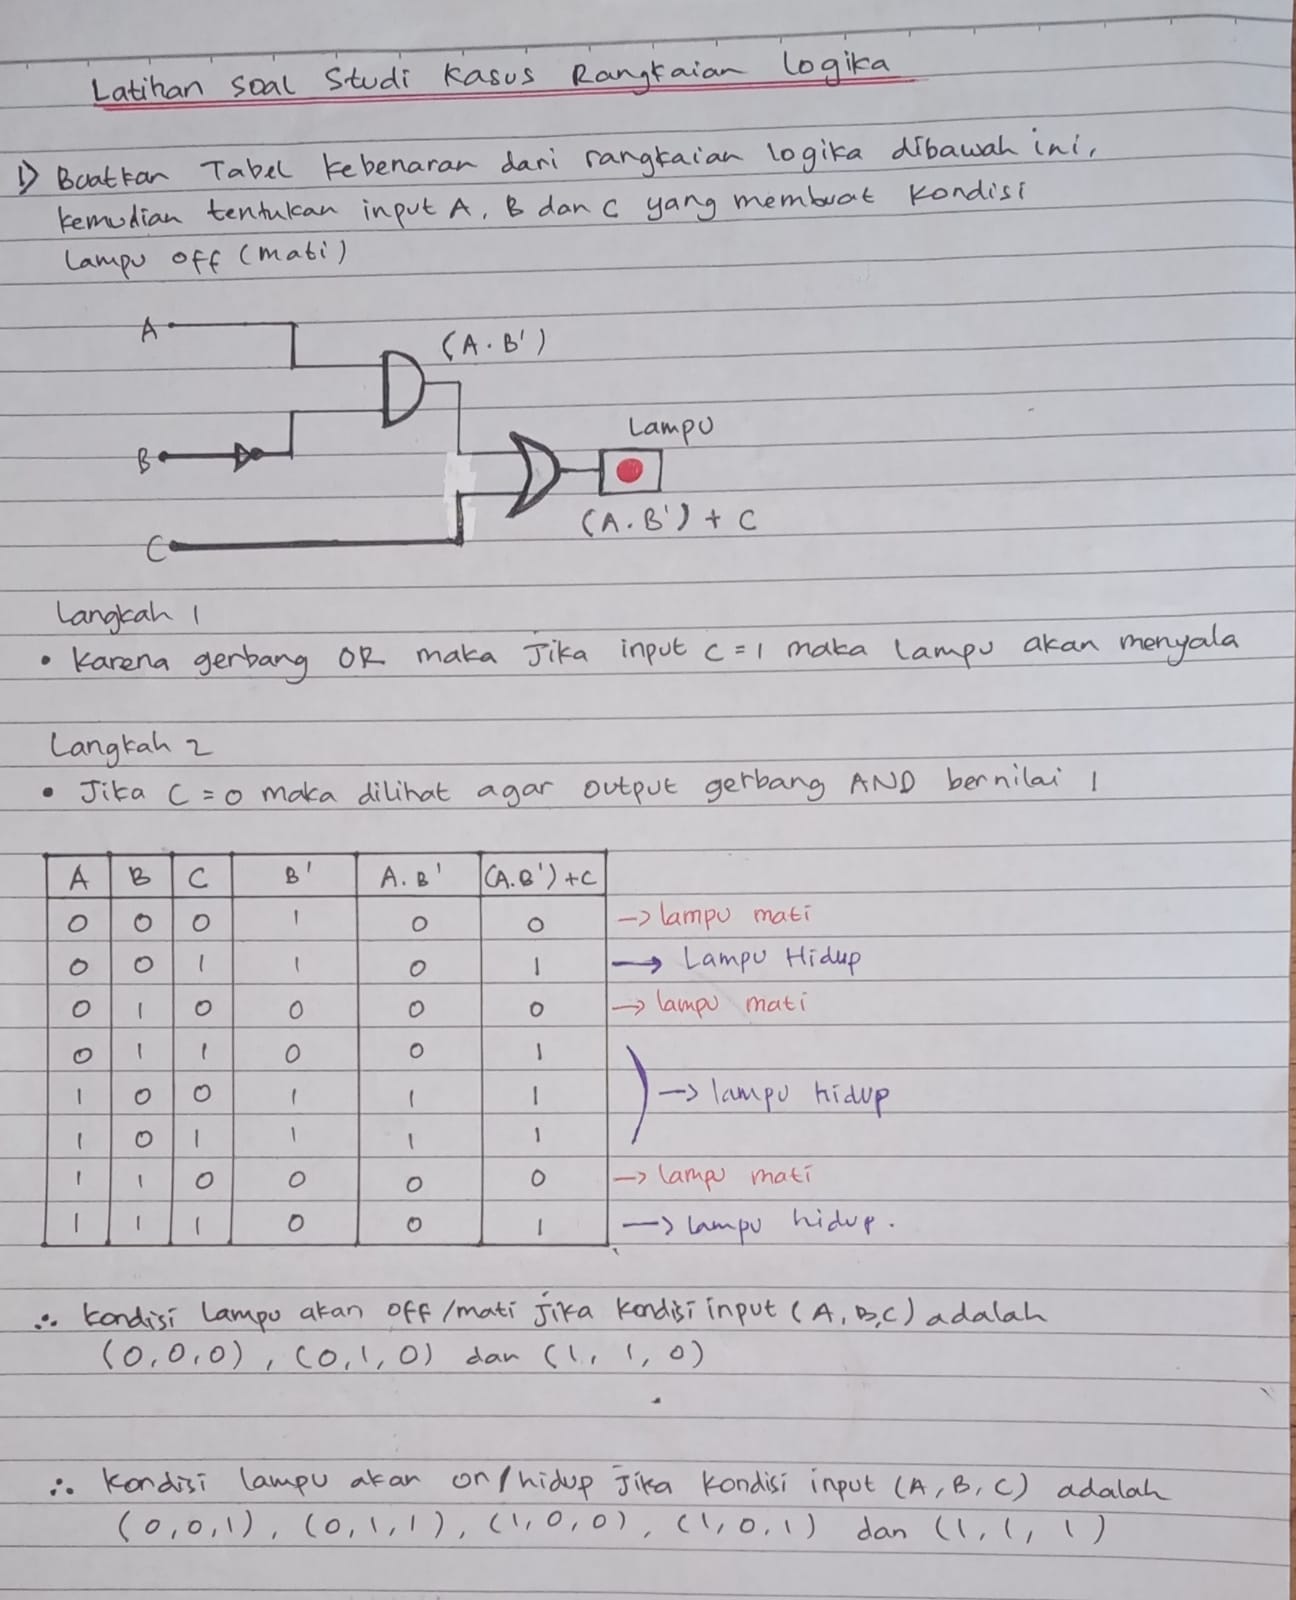 Latihan soal Studi Kasus Rangkaian Logika
1) Buatkan Tabel kebenaran dari rangkaian logika dibawah ini,
kemudian tentukan input A, B dan C yang membuat kondisi
lampu off (mati)
A
(A.B')
B
Lampu
(A.B') + C
C
Langkah 1
• Karena gerbang OR maka Jika input C = 1 maka lampu akan menyala
Langkah 2
• Jika C = 0 maka dilihat agar output gerbang AND bernilai 1
A B C B' A.B' (A.B')+C
0 0 0 1 0 0 -> lampu mati
0 0 1 1 0 1 -> Lampu Hidup
0 1 0 0 0 0 -> lampu mati
0 1 1 0 0 1
1 0 0 1 1 1 -> lampu hidup
1 0 1 1 1 1
1 1 0 0 0 0 -> lampu mati
1 1 1 0 0 1 -> lampu hidup.
∴ Kondisi Lampu akan off/mati jika kondisi input (A, B,C) adalah
(0,0,0), (0,1,0) dan (1, 1, 0)
∴ Kondisi lampu akan on/hidup Jika kondisi input (A, B, C) adalah
(0,0,1), (0,1,1), (1,0,0), (1,0,1) dan (1,1,1)